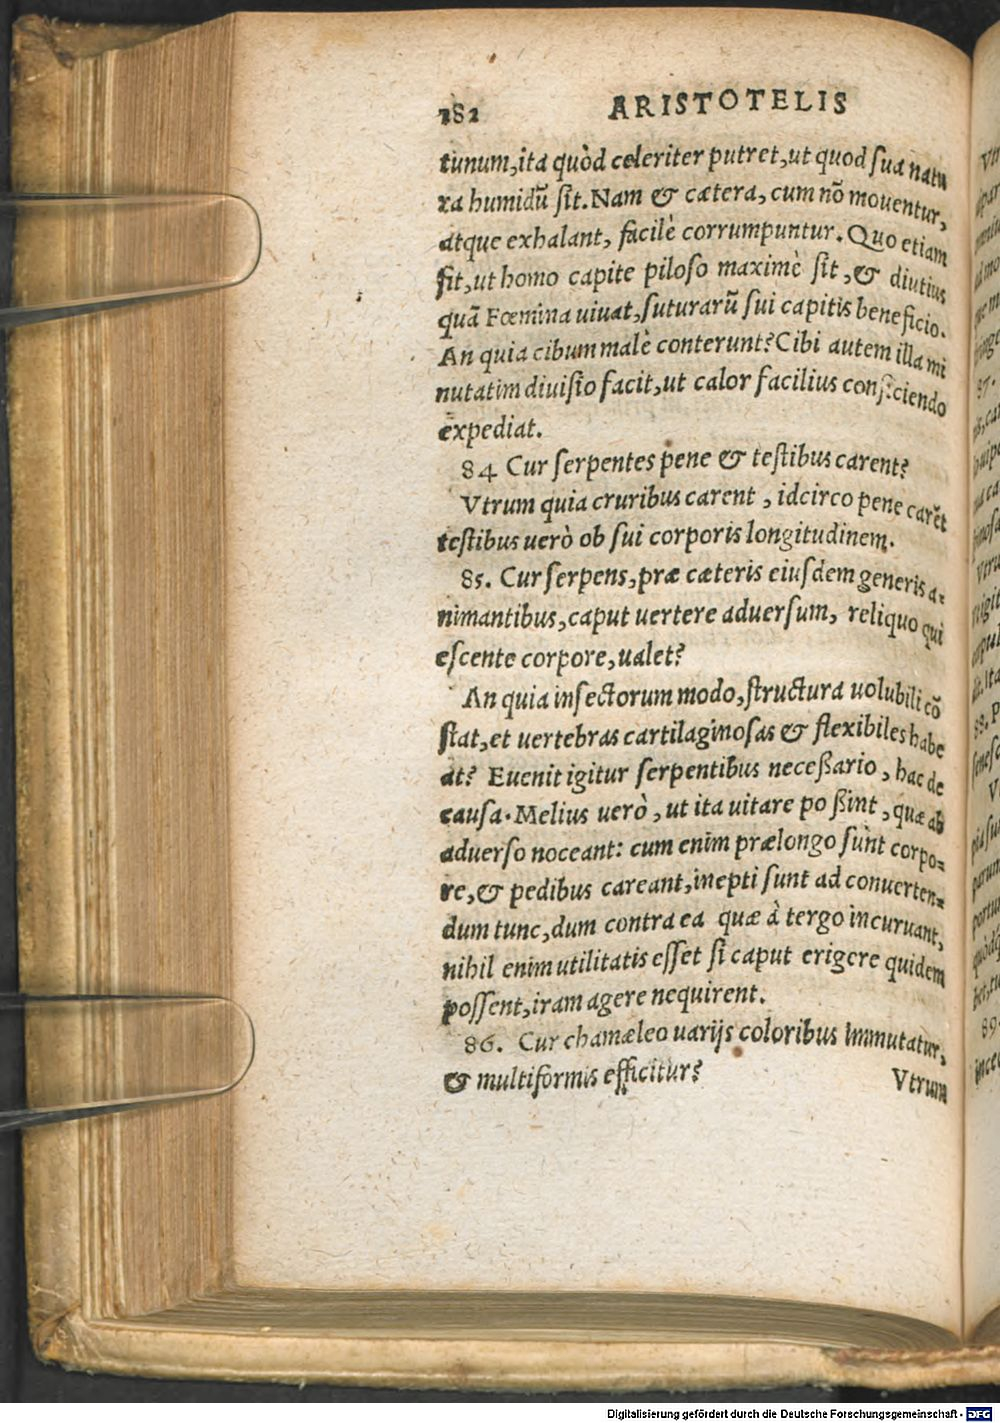 282 ARISTOTELIS
tunum, ita quòd celeriter putret, ut quod sua natu
ra humidũ sit. Nam & cætera, cum nõ mouentur,
atque exhalant, facilè corrumpuntur. Quo etiam
fit, ut homo capite piloso maximè sit, & diutius
quã Fœmina uiuat, suturarũ sui capitis beneficio.
An quia cibum malè conterunt? Cibi autem illa mi
nutatim diuisio facit, ut calor facilius conficiendo
expediat.
84 Cur serpentes pene & testibus carent?
Vtrum quia cruribus carent, idcirco pene carẽt
testibus uerò ob sui corporis longitudinem.
85. Cur serpens, præ cæteris eiusdem generis a-
nimantibus, caput uertere aduersum, reliquo qui
escente corpore, ualet?
An quia insectorum modo, structura uolubili cõ
stat, et uertebras cartilaginosas & flexibiles habe
at? Euenit igitur serpentibus necessario, hac de
causa. Melius uerò, ut ita uitare possint, quæ ab
aduerso noceant: cum enim prælongo sunt corpo-
re, & pedibus careant, inepti sunt ad conuerten-
dum tunc, dum contra ea quæ à tergo incuruant,
nihil enim utilitatis esset si caput erigere quidem
possent, iram agere nequirent.
86. Cur chamæleo uarijs coloribus immutatur,
& multiformis efficitur? Vtrum
Digitalisierung gefördert durch die Deutsche Forschungsgemeinschaft - DFG